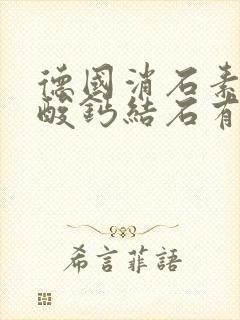 德國消石素
酸鈣結石有
希言菲語